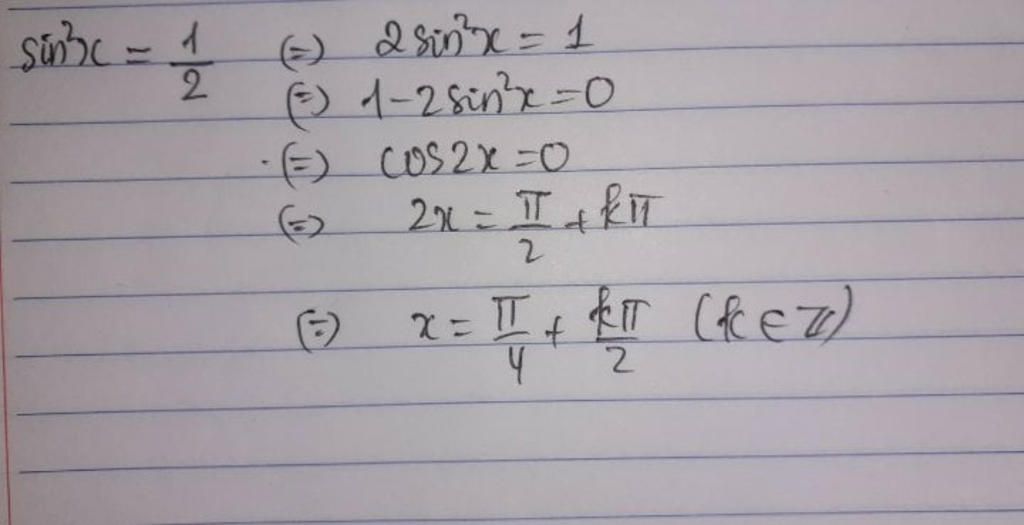 sin²x = 1/2 (=) 2sin²x = 1
(=) 1-2sin²x=0
(=) cos2x=0
(=) 2x = π/2 + kπ
(=) x = π/4 + kπ/2 (k∈ℤ)